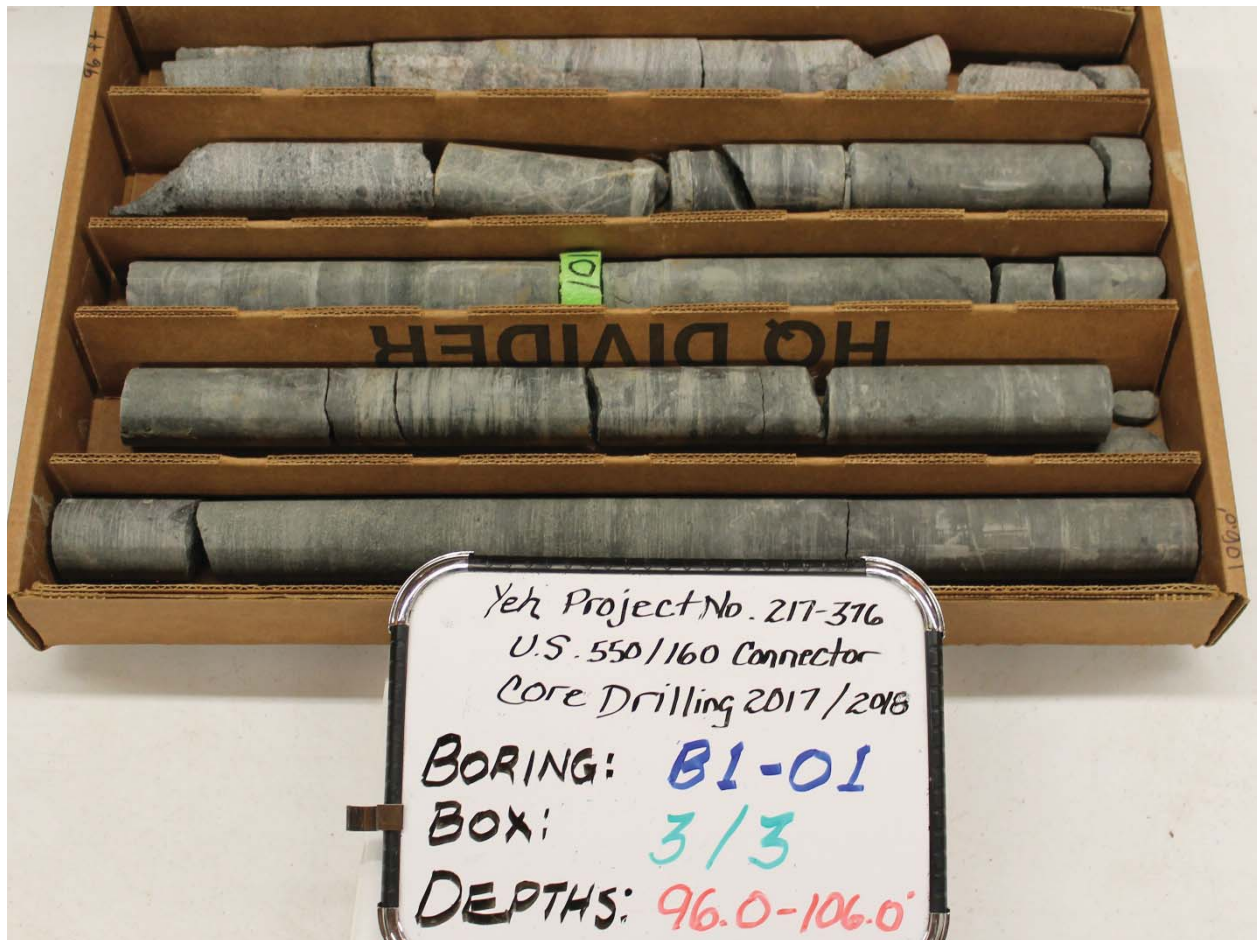 96 ft
101
HQ DIVIDER
106.0'
Yeh Project No. 217-376
U.S. 550/160 Connector
Core Drilling 2017/2018
BORING: B1-01
BOX: 3/3
DEPTHS: 96.0-106.0'